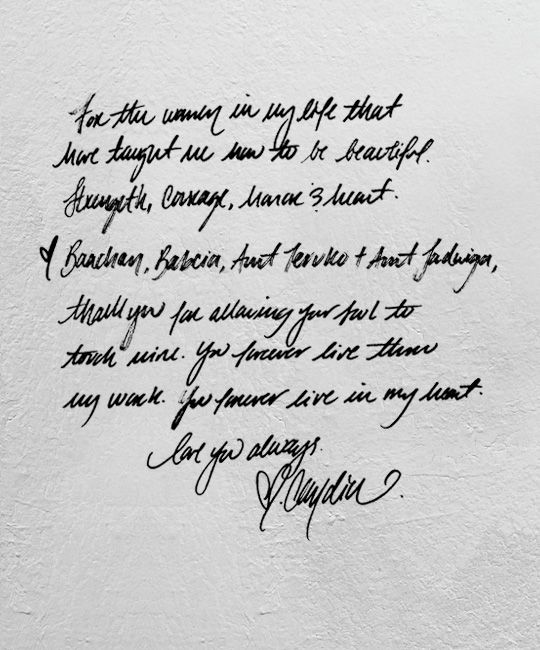 For the women in my life that
have taught me how to be beautiful.
Strength, Courage, & heart.
♥ Baachan, Babcia, Aunt Teruko + Aunt Jadwiga,
thank you for allowing your soul to
touch mine. You forever live thru
my work. You forever live in my heart.
love you always.